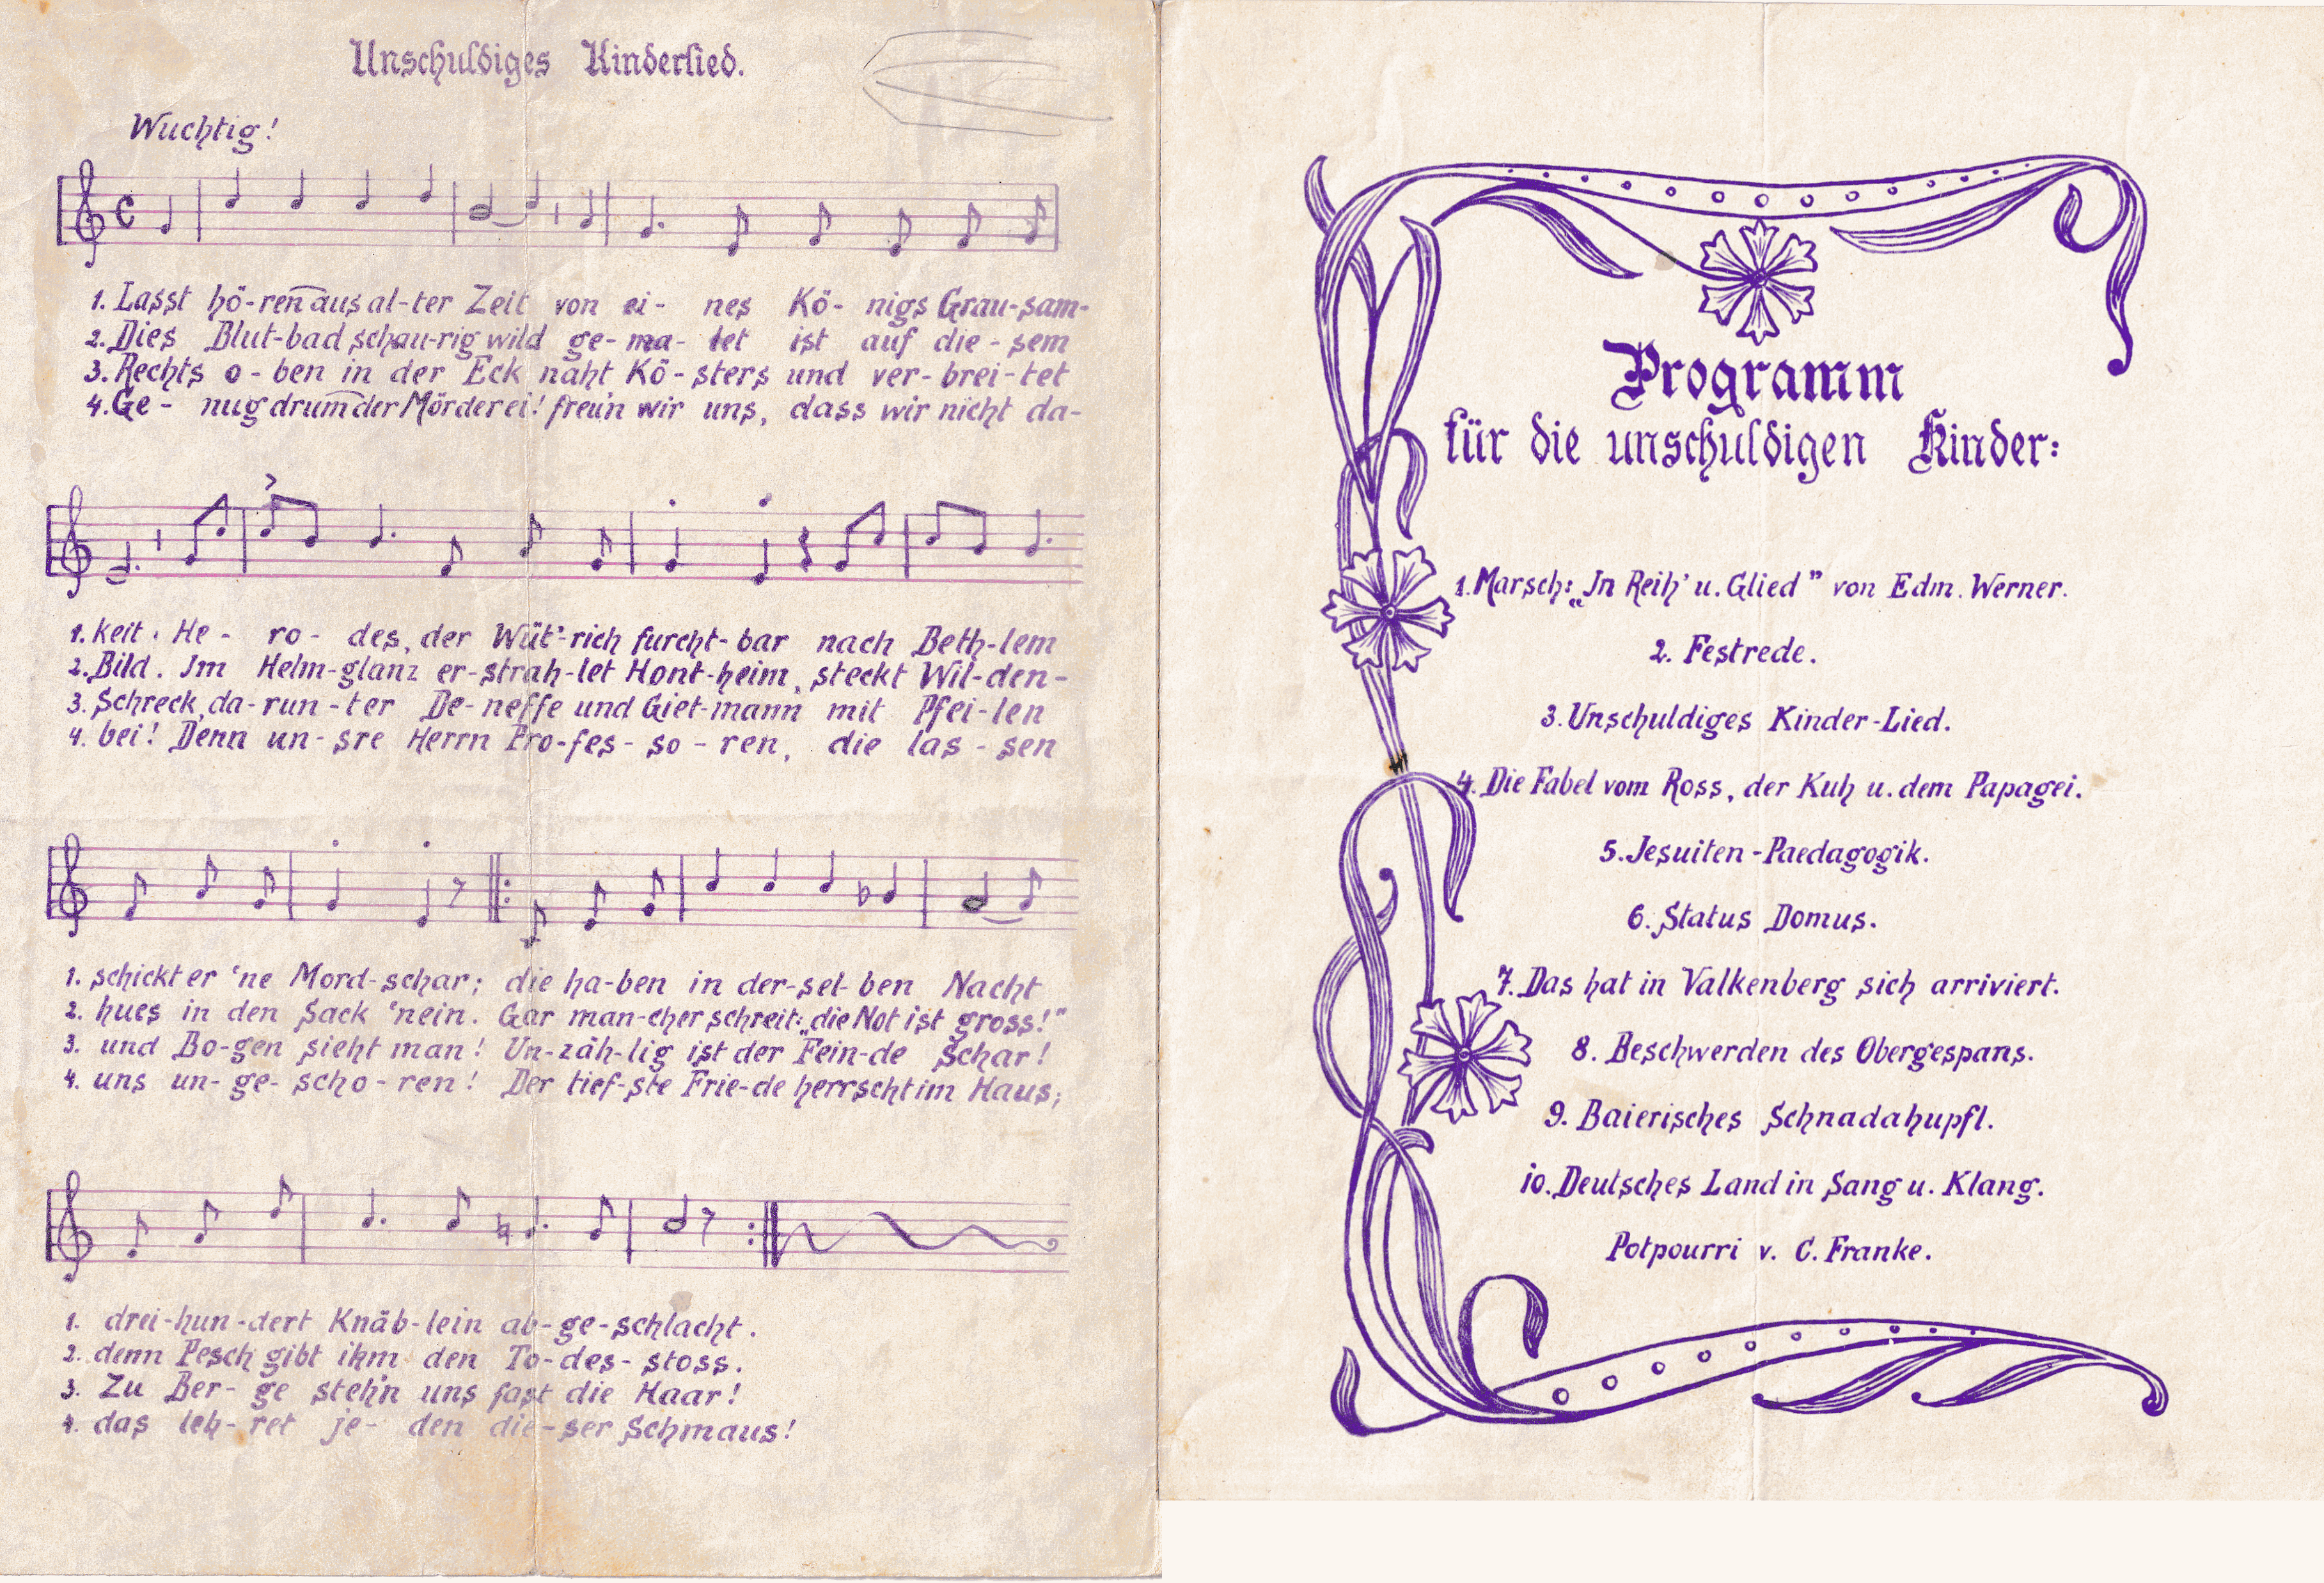 Unschuldiges Kinderlied.
Wuchtig!
1. Lasst hö-ren aus al-ter Zeit von ei- nes Kö- nigs Grau-sam-
2. Dies Blut-bad schau-rig wild ge-ma-let ist auf die-sem
3. Rechts o-ben in der Eck naht Kö-sters und ver-brei-tet
4. Ge- nug drum der Mörderei! freu'n wir uns, dass wir nicht da-
1. keit. He- ro- des, der Wüt'-rich furcht-bar nach Beth-lem
2. Bild. Im Helm-glanz er-strah-let Hont-heim, steckt Wil-den-
3. Schreck, da-run-ter De-neffe und Giet-mann mit Pfei-len
4. bei! Denn un-sre Herrn Pro-fes-so-ren, die las-sen
1. schickt er 'ne Mord-schar; die ha-ben in der-sel-ben Nacht
2. hues in den Sack 'nein. Gar man-cher schreit: „die Not ist gross!"
3. und Bo-gen sieht man! Un-zäh-lig ist der Fein-de Schar!
4. uns un-ge-scho-ren! Der tief-ste Frie-de herrscht im Haus;
1. drei-hun-dert Knäb-lein ab-ge-schlacht.
2. denn Pesch gibt ihm den To-des-stoss.
3. Zu Ber-ge steh'n uns fast die Haar!
4. das leh-ret je-den die-ser Schmaus!
Programm
für die unschuldigen Kinder:
1. Marsch: „In Reih' u. Glied" von Edm. Werner.
2. Festrede.
3. Unschuldiges Kinder-Lied.
4. Die Fabel vom Ross, der Kuh u. dem Papagei.
5. Jesuiten-Paedagogik.
6. Status Domus.
7. Das hat in Valkenberg sich arriviert.
8. Beschwerden des Obergespans.
9. Baierisches Schnadahupfl.
10. Deutsches Land in Sang u. Klang.
Potpourri v. C. Franke.